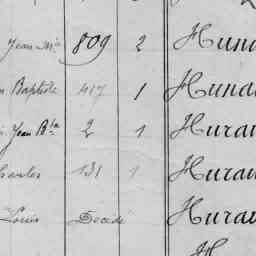 Jean M.ie 809 2 Hund
Baptiste 417 1 Hund
Jean B.te 2 1 Hurau
Charles 131 1 Hurau
Louis Décédé Hurau
H